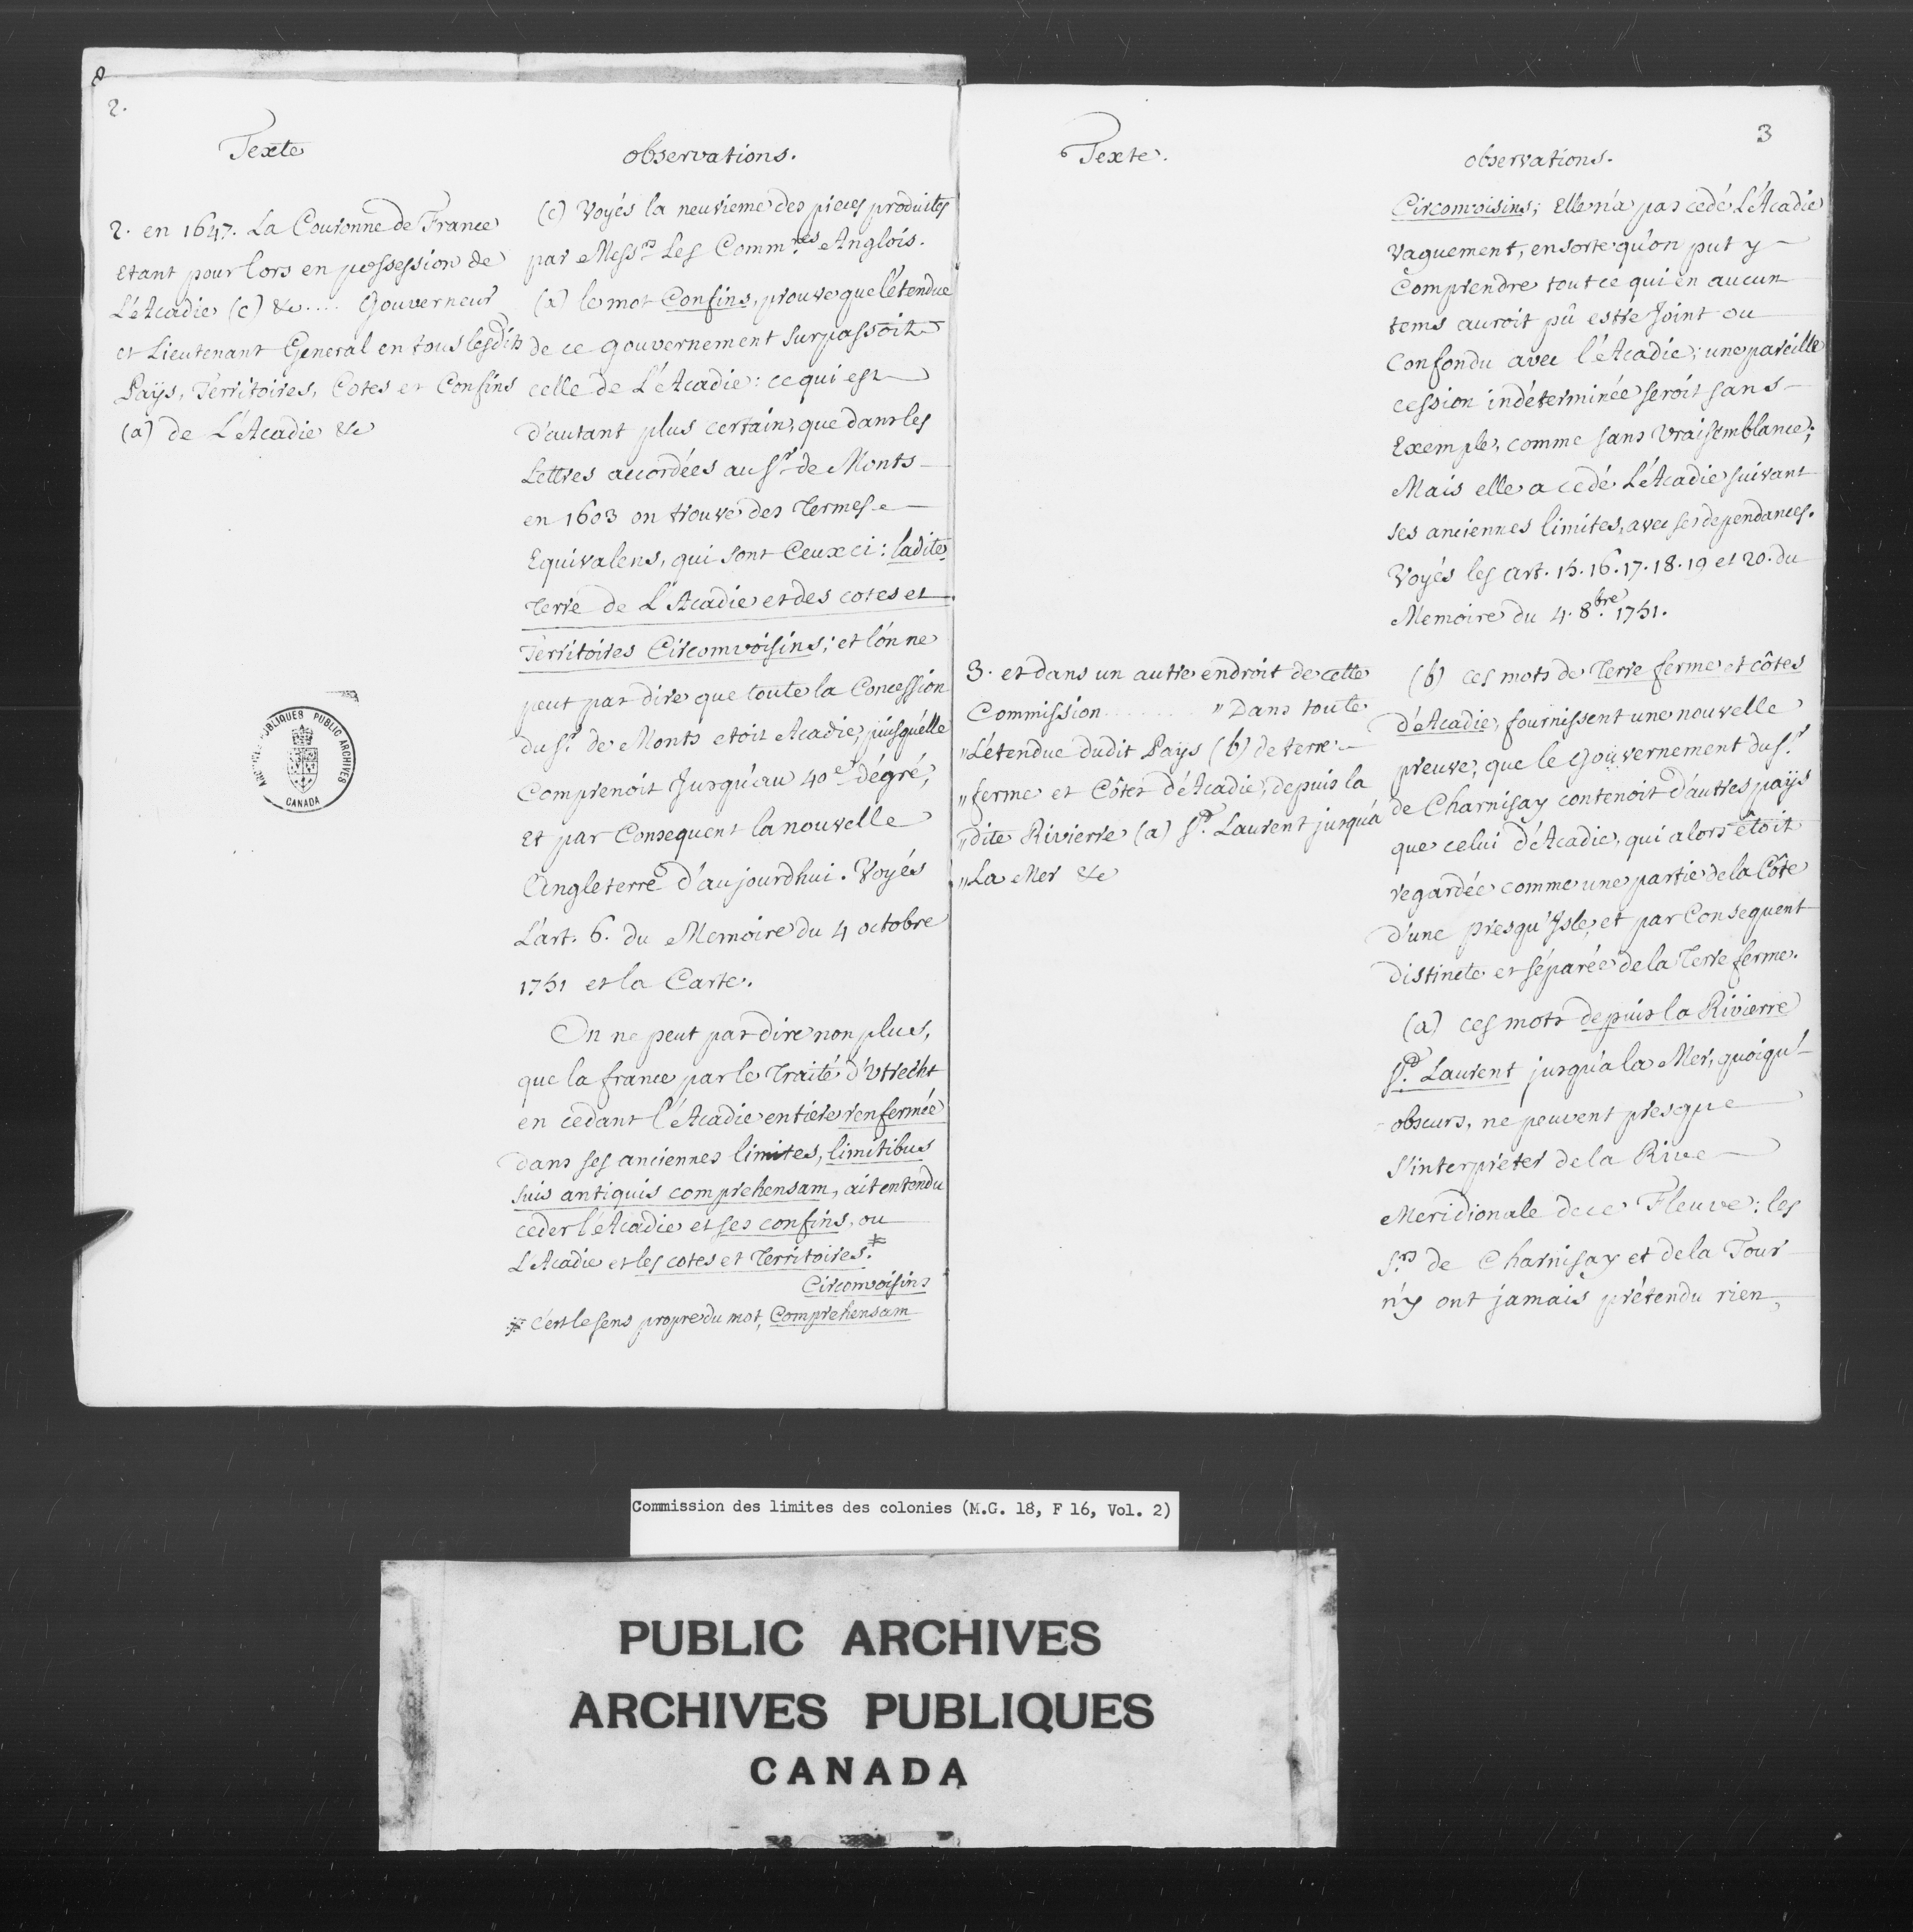 2.
Texte
2. en 1647. La Couronne de France
Etant pour lors en possession de
L'Acadie (c) &c .... Gouverneur
et Lieutenant General en tous lesdits
Païs, Territoires, Cotes et Confins
(a) de L'Acadie &c
observations.
(c) Voyés la neuvieme des pieces produites
par Mess.rs Les Comm.res Anglois.
(a) le mot Confins, prouve que l'étendue
de ce gouvernement surpassoit
celle de L'Acadie: ce qui est
d'autant plus certain, que dans les
Lettres accordées au S.r de Monts
en 1603 on trouve des Termes
Equivalens, qui sont Ceux ci: ladite
Terre de L'Acadie et des cotes et
Territoires Circomvoisins; et l'on ne
peut pas dire que toute la Concession
du S.r de Monts etoit Acadie, puisqu'elle
Comprenoit Jusqu'au 40e. dégré,
et par Consequent la nouvelle
Angleterre d'aujourdhui. Voyés
L'art. 6. du Memoire du 4 octobre
1751 et la Carte.
On ne peut pas dire non plus,
que la france par le Traité d'Utrecht
en cedant l'Acadie entiere renfermée
dans ses anciennes limites, limitibus
suis antiquis comprehensam, ait entendu
ceder l'Acadie et ses confins, ou
L'Acadie et les cotes et Territoires. *
Circomvoisins
* C'est le sens propre du mot, Comprehensam
3
Texte.
observations.
Circomvoisins; Elle n'a pas cedé L'Acadie
vaguement, ensorte qu'on put y
Comprendre tout ce qui en aucun
tems auroit pû estre Joint ou
Confondu avec l'Acadie; une pareille
cession indéterminée seroit sans
Exemple, comme sans Vraisemblance;
Mais elle a cedé L'Acadie suivant
ses anciennes limites, avec ses dependances.
Voyés les art. 15. 16. 17. 18. 19 et 20. du
Memoire du 4. 8.bre 1751.
3. et dans un autre endroit de cette
Commission ........ " Dans toute
" L'étendue dudit Païs (b) de terre
" ferme et Côtes d'Acadie, depuis la
" dite Rivierre (a) S.t Laurent jusqu'à
" La Mer &c
(b) ces mots de Terre ferme et côtes
d'Acadie, fournissent une nouvelle
preuve, que le Gouvernement du S.r
de Charnisay contenoit d'autres païs
que celui d'Acadie, qui alors êtoit
regardée comme une partie de la Côte
d'une presqu'Isle, et par Consequent
distincte et séparée de la Terre ferme.
(a) ces mots depuis la Rivierre
S.t Laurent jusqu'a la Mer, quoiqu'
obscurs, ne peuvent presque
s'interpréter de la Rive
Meridionale de ce Fleuve: les
S.rs de Charnisay et de la Tour
n'y ont jamais prétendu rien,
PUBLIC ARCHIVES
CANADA
Commission des limites des colonies (M.G. 18, F 16, Vol. 2)
PUBLIC ARCHIVES
ARCHIVES PUBLIQUES
CANADA